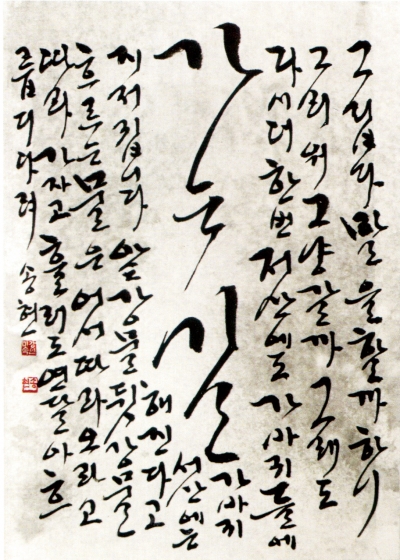 그립다 말을 할까 하니
그리워 그냥 갈까 그래도
다시 더 한번 저산에도 가마귀 들에
가는 길
가마귀
서산에는
해진다고
지저귑니다 앞강물 뒷강물
흐르는 물은 어서 따라오라고
따라가자고 흘러도 연달아 흐
릅디다려 송현